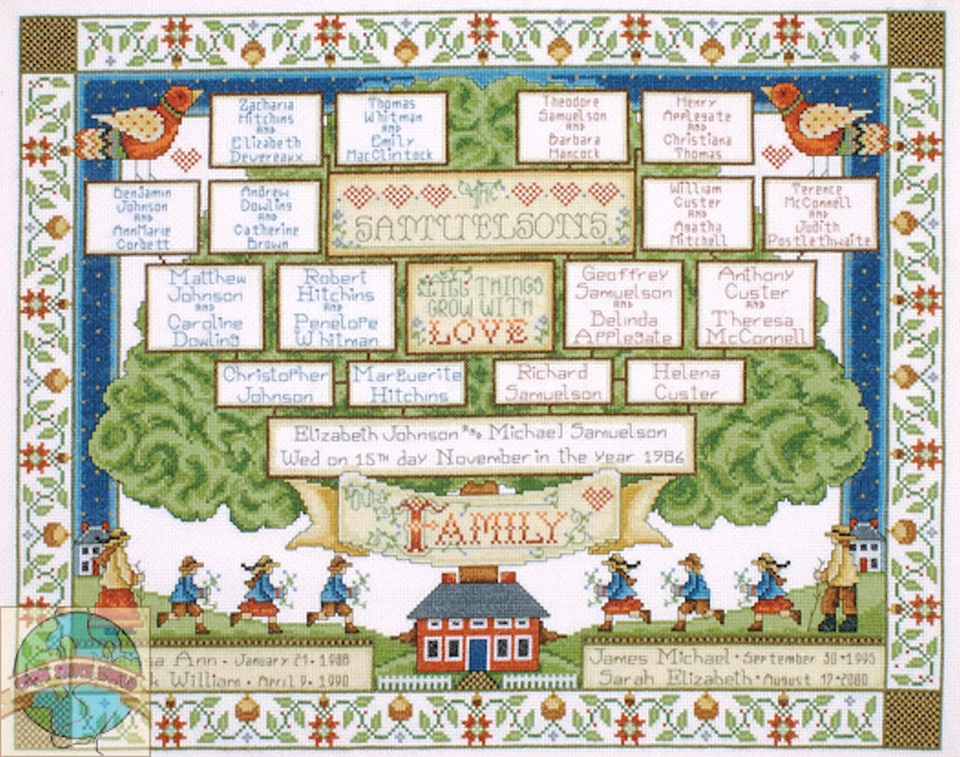 Zacharia
Hitchins
AND
Elizabeth
Devereaux
Thomas
Whitman
AND
Emily
MacClintock
Theodore
Samuelson
AND
Barbara
Hancock
Henry
Applegate
AND
Christiana
Thomas
Benjamin
Johnson
AND
AnnMarie
Corbett
Andrew
Dowling
AND
Catherine
Brown
THE
SAMUELSONS
William
Custer
AND
Agatha
Mitchell
Terence
McConnell
AND
Judith
Postlethwaite
Matthew
Johnson
AND
Caroline
Dowling
Robert
Hitchins
AND
Penelope
Whitman
ALL THINGS
GROW WITH
LOVE
Geoffrey
Samuelson
AND
Belinda
Applegate
Anthony
Custer
AND
Theresa
McConnell
Christopher
Johnson
Marguerite
Hitchins
Richard
Samuelson
Helena
Custer
Elizabeth Johnson AND Michael Samuelson
Wed on 15TH day November in the year 1986
OUR
FAMILY
Ann • January 21 • 1988
William • April 9 • 1990
James Michael • September 30 • 1995
Sarah Elizabeth • August 17 • 2000